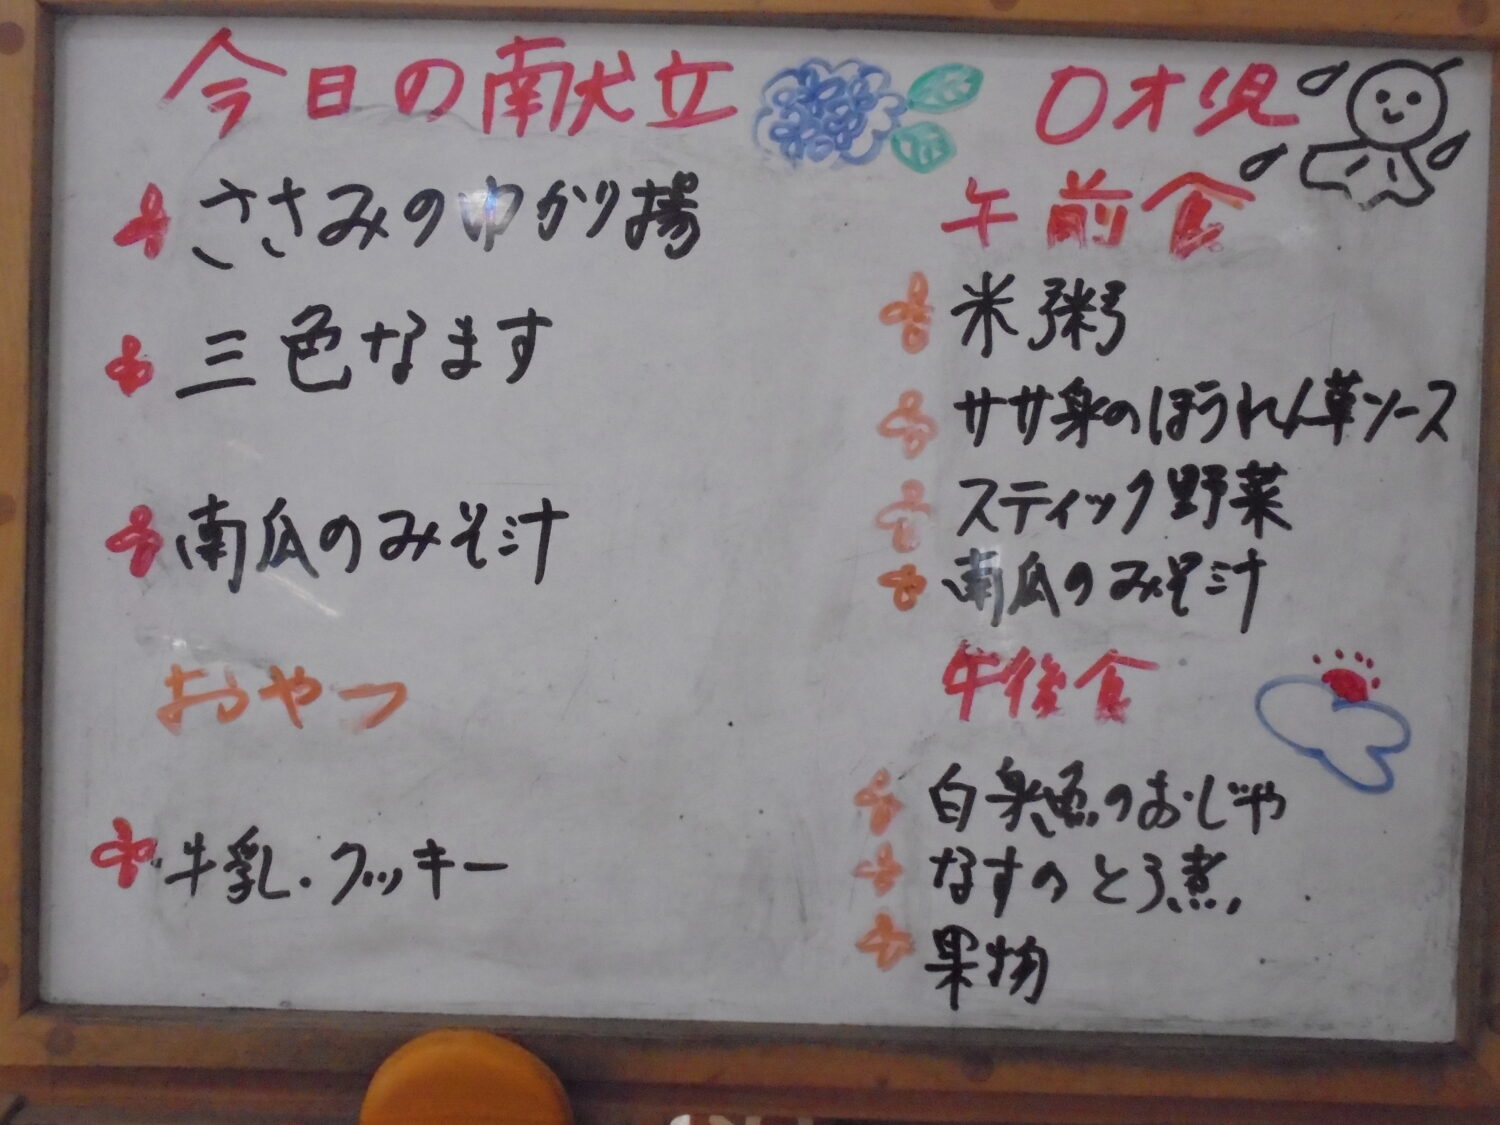 今日の献立
ささみのゆかり揚
三色なます
南瓜のみそ汁
おやつ
牛乳・クッキー
0才児
午前食
米粥
ササ身のほうれん草ソース
スティック野菜
南瓜のみそ汁
午後食
白身魚のおじや
なすのとろ煮
果物